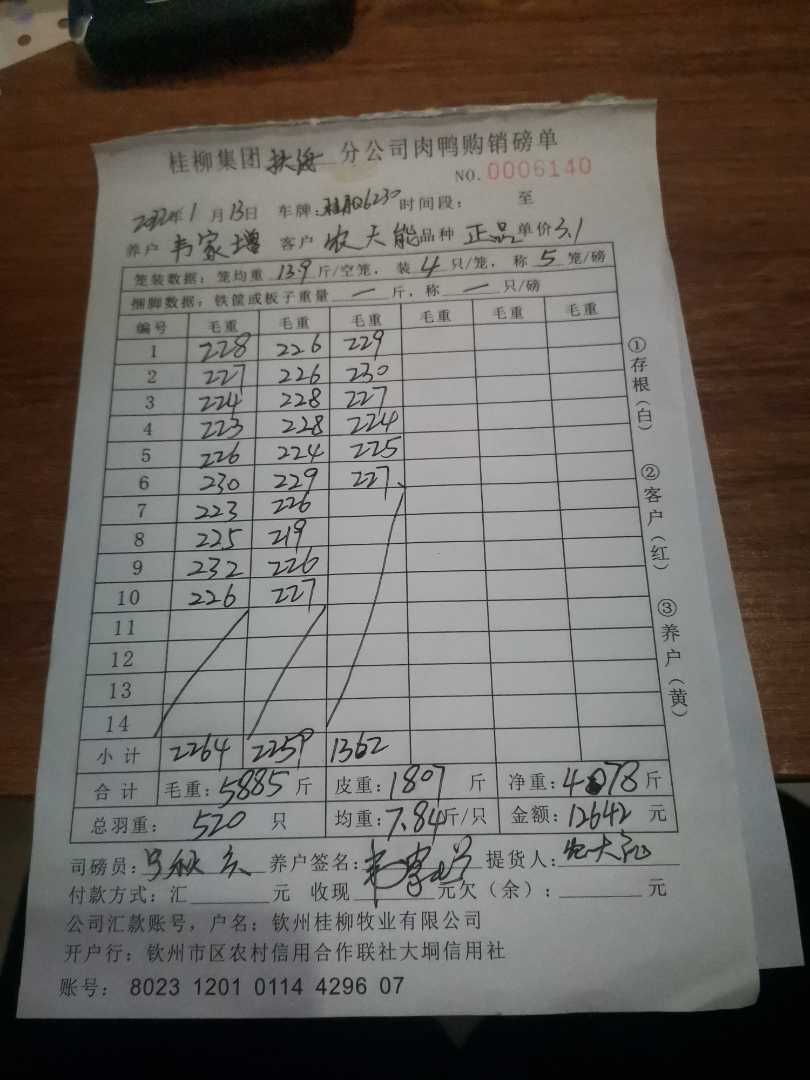 桂柳集团扶绥分公司肉鸭购销磅单
NO.0006140
2022年1月13日 车牌:桂 6230 时间段: 至
养户 韦家增 客户 农天能 品种 正品 单价 3.1
笼装数据:笼均重 13.9 斤/空笼,装 4 只/笼,称 5 笼/磅
捆脚数据:铁筐或板子重量 — 斤,称 — 只/磅
编号 毛重 毛重 毛重 毛重 毛重 毛重
1 228 226 229
2 227 226 230
3 224 228 227
4 223 228 224
5 226 224 225
6 230 229 227
7 223 226
8 225 219
9 232 226
10 226 227
11
12
13
14
小计 2264 2259 1362
合计 毛重:5885 斤 皮重:1807 斤 净重:4078 斤
总羽重: 520 只 均重:7.84 斤/只 金额:12642 元
司磅员: 养户签名:韦家增 提货人:农天能
付款方式:汇 元 收现 元欠(余): 元
公司汇款账号,户名:钦州桂柳牧业有限公司
开户行:钦州市区农村信用合作联社大垌信用社
账号: 8023 1201 0114 4296 07
①存根(白)
②客户(红)
③养户(黄)